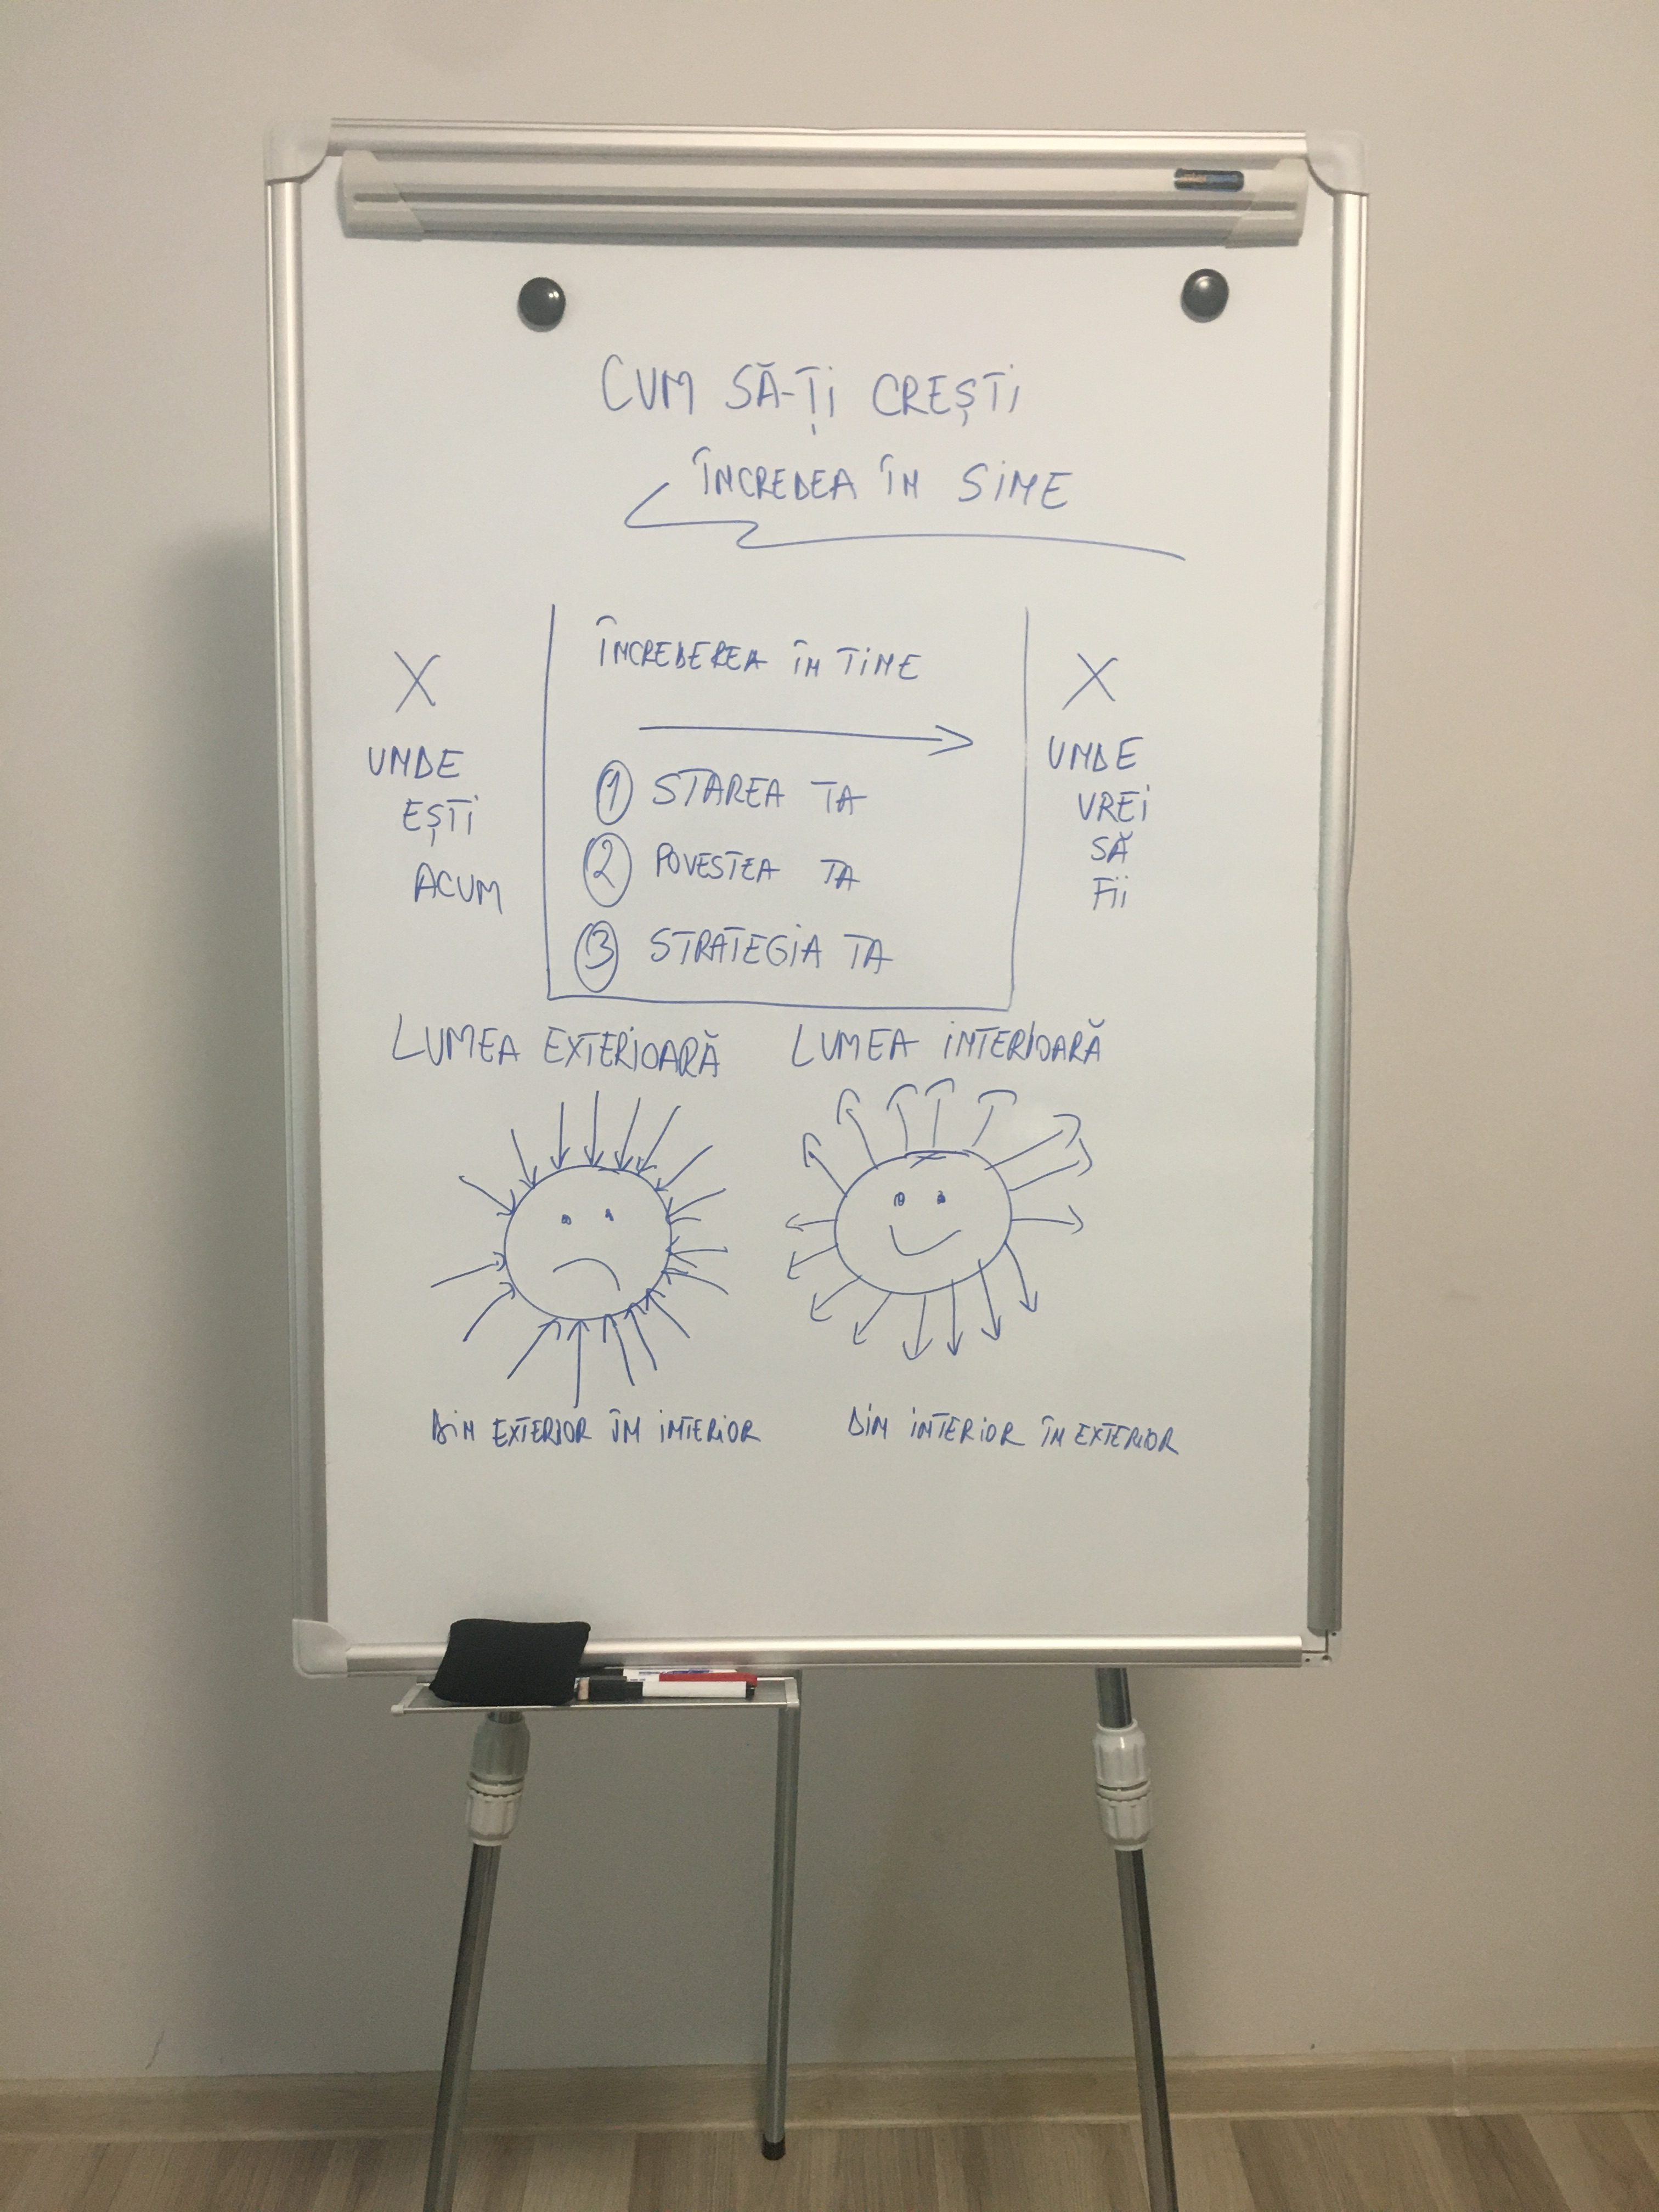 CUM SĂ-ȚI CREȘTI
ÎNCREDEA ÎN SINE
X
UNDE
EȘTI
ACUM
ÎNCREDEREA ÎN TINE
1 STAREA TA
2 POVESTEA TA
3 STRATEGIA TA
X
UNDE
VREI
SĂ
FII
LUMEA EXTERIOARĂ
LUMEA INTERIOARĂ
DIN EXTERIOR ÎN INTERIOR
DIN INTERIOR ÎN EXTERIOR